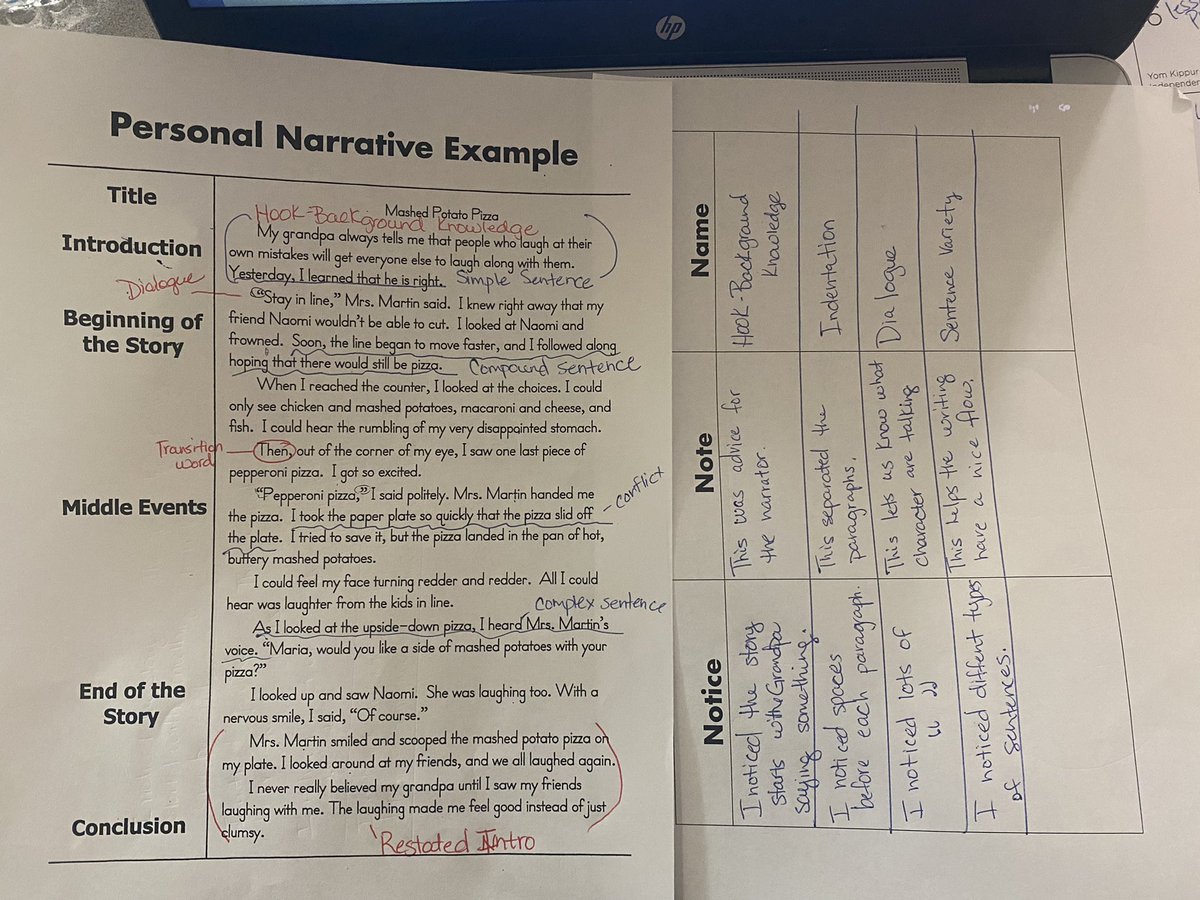 hp
less
Yom Kippur
Personal Narrative Example
Title
Mashed Potato Pizza
Hook-Background Knowledge
Introduction
My grandpa always tells me that people who laugh at their
own mistakes will get everyone else to laugh along with them.
Yesterday, I learned that he is right. Simple Sentence
Dialogue
Beginning of
the Story
"Stay in line," Mrs. Martin said. I knew right away that my
friend Naomi wouldn't be able to cut. I looked at Naomi and
frowned. Soon, the line began to move faster, and I followed along
hoping that there would still be pizza. Compound Sentence
When I reached the counter, I looked at the choices. I could
only see chicken and mashed potatoes, macaroni and cheese, and
fish. I could hear the rumbling of my very disappointed stomach.
Transition
word
Then, out of the corner of my eye, I saw one last piece of
pepperoni pizza. I got so excited.
Middle Events
"Pepperoni pizza," I said politely. Mrs. Martin handed me
the pizza. I took the paper plate so quickly that the pizza slid off
- conflict
the plate. I tried to save it, but the pizza landed in the pan of hot,
buttery mashed potatoes.
I could feel my face turning redder and redder. All I could
hear was laughter from the kids in line.
Complex sentence
As I looked at the upside-down pizza, I heard Mrs. Martin's
voice. "Maria, would you like a side of mashed potatoes with your
pizza?"
End of the
Story
I looked up and saw Naomi. She was laughing too. With a
nervous smile, I said, "Of course."
Mrs. Martin smiled and scooped the mashed potato pizza on
my plate. I looked around at my friends, and we all laughed again.
Conclusion
I never really believed my grandpa until I saw my friends
laughing with me. The laughing made me feel good instead of just
clumsy.
Restated Intro
Notice
Note
Name
I noticed the story
starts with Grandpa
saying something.
This was advice for
the narrator.
Hook-Background
Knowledge
I noticed spaces
before each paragraph.
This separated the
paragraphs.
Indentation
I noticed lots of
" "
This lets us know what
character are talking
Dialogue
I noticed different types
of sentences.
This helps the writing
have a nice flow.
Sentence Variety